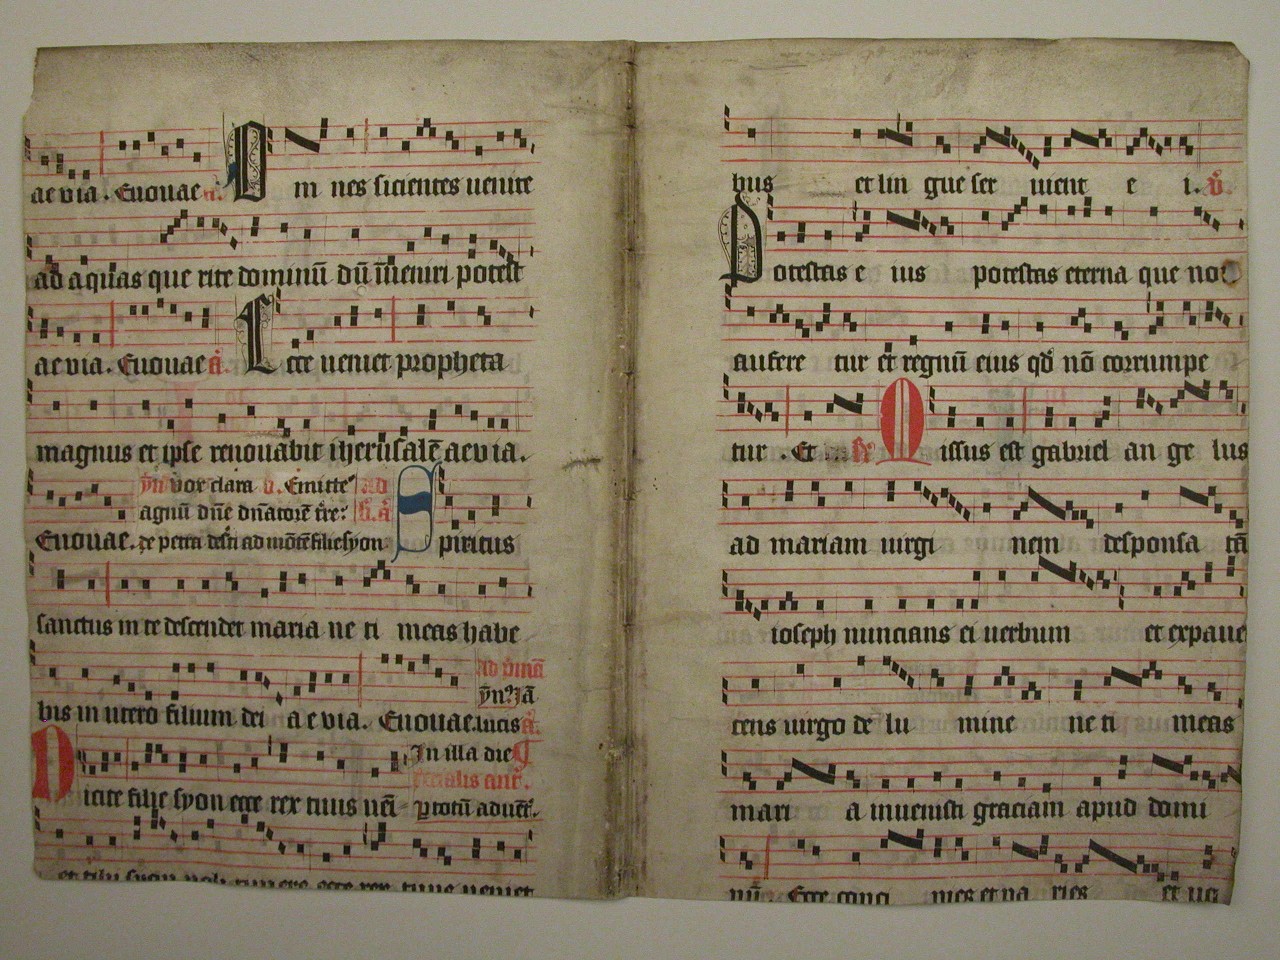 ae via. Euouae a. Om nes sicientes uenite
ad aquas que rite dominū dū īueniri potest
ae via. Euouae a. Ecce ueniet propheta
magnus et ipse renouabit iherusalē ae v ia.
ȳn vox clara v. Emitte ad
agnū dn̄e dn̄atorē tr̄e:
Euouae. de petra des̄ti ad mōtē filie syon
Spiritus
sanctus in te descendet maria ne ti meas habe
ad p̄mā
ȳn? Jā
bis in utero filium dei a e v ia. Euouae. lucis a.
In illa die
Dicite filie syon ecce rex tuus ueī
p totū aduēt.
bus et lin gue ser uient e i. v.
Potestas e ius potestas eterna que nō
aufere tur et regnū eius qd̄ nō corrumpe
tur . Et Missus est gabriel an ge lus
ad mariam uirgi nem desponsa tā
ioseph nuncians ei uerbum et expaue
cens uirgo de lu mine ne ti meas
mari a inuenisti graciam apud domi
nū. Ecce conci pies et pa ries et uo